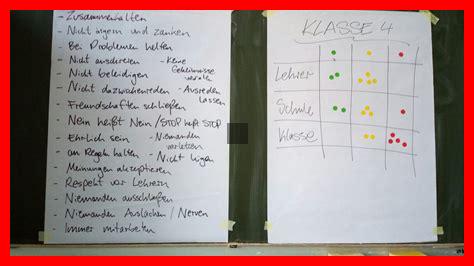 - Zusammenhalten
- Nicht ärgern und zanken
- Bei Problemen helfen
- Nicht ausdereien - Keine Geheimnisse verraten
- Nicht beleidigen
- Nicht dazwischenreden - Ausreden lassen
- Freundschaften schließen
- Nein heißt Nein / STOP heißt STOP
- Ehrlich sein - Niemanden verletzen
- an Regeln halten - Nicht lügen
- Meinungen akzeptieren
- Respekt vor Lehrern
- Niemanden ausschließen
- Niemanden Auslachen / Nerven
- Immer mitarbeiten
KLASSE 4
Lehrer
Schule
Klasse